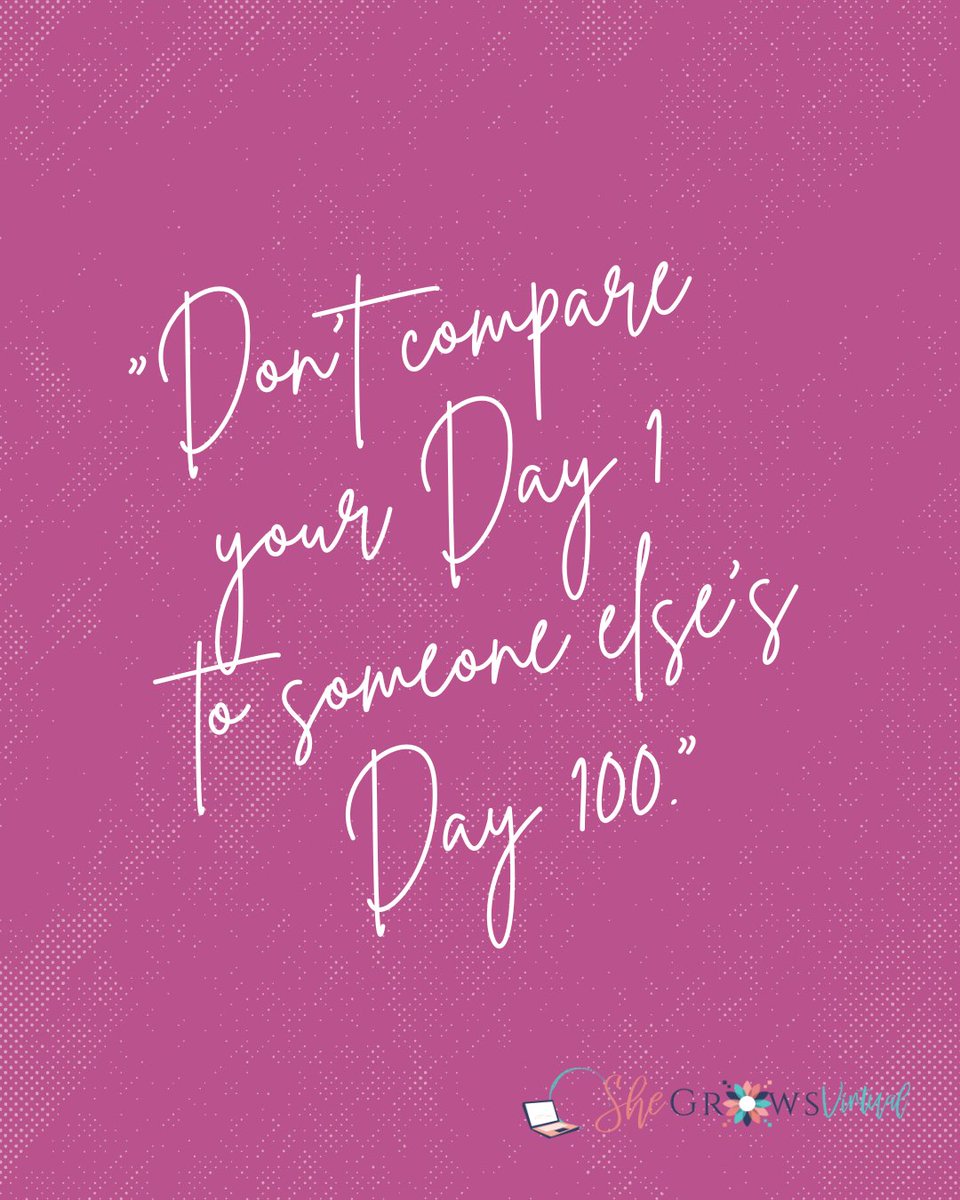 "Don't compare
your Day 1
to someone else's
Day 100."
She GROWS Virtual